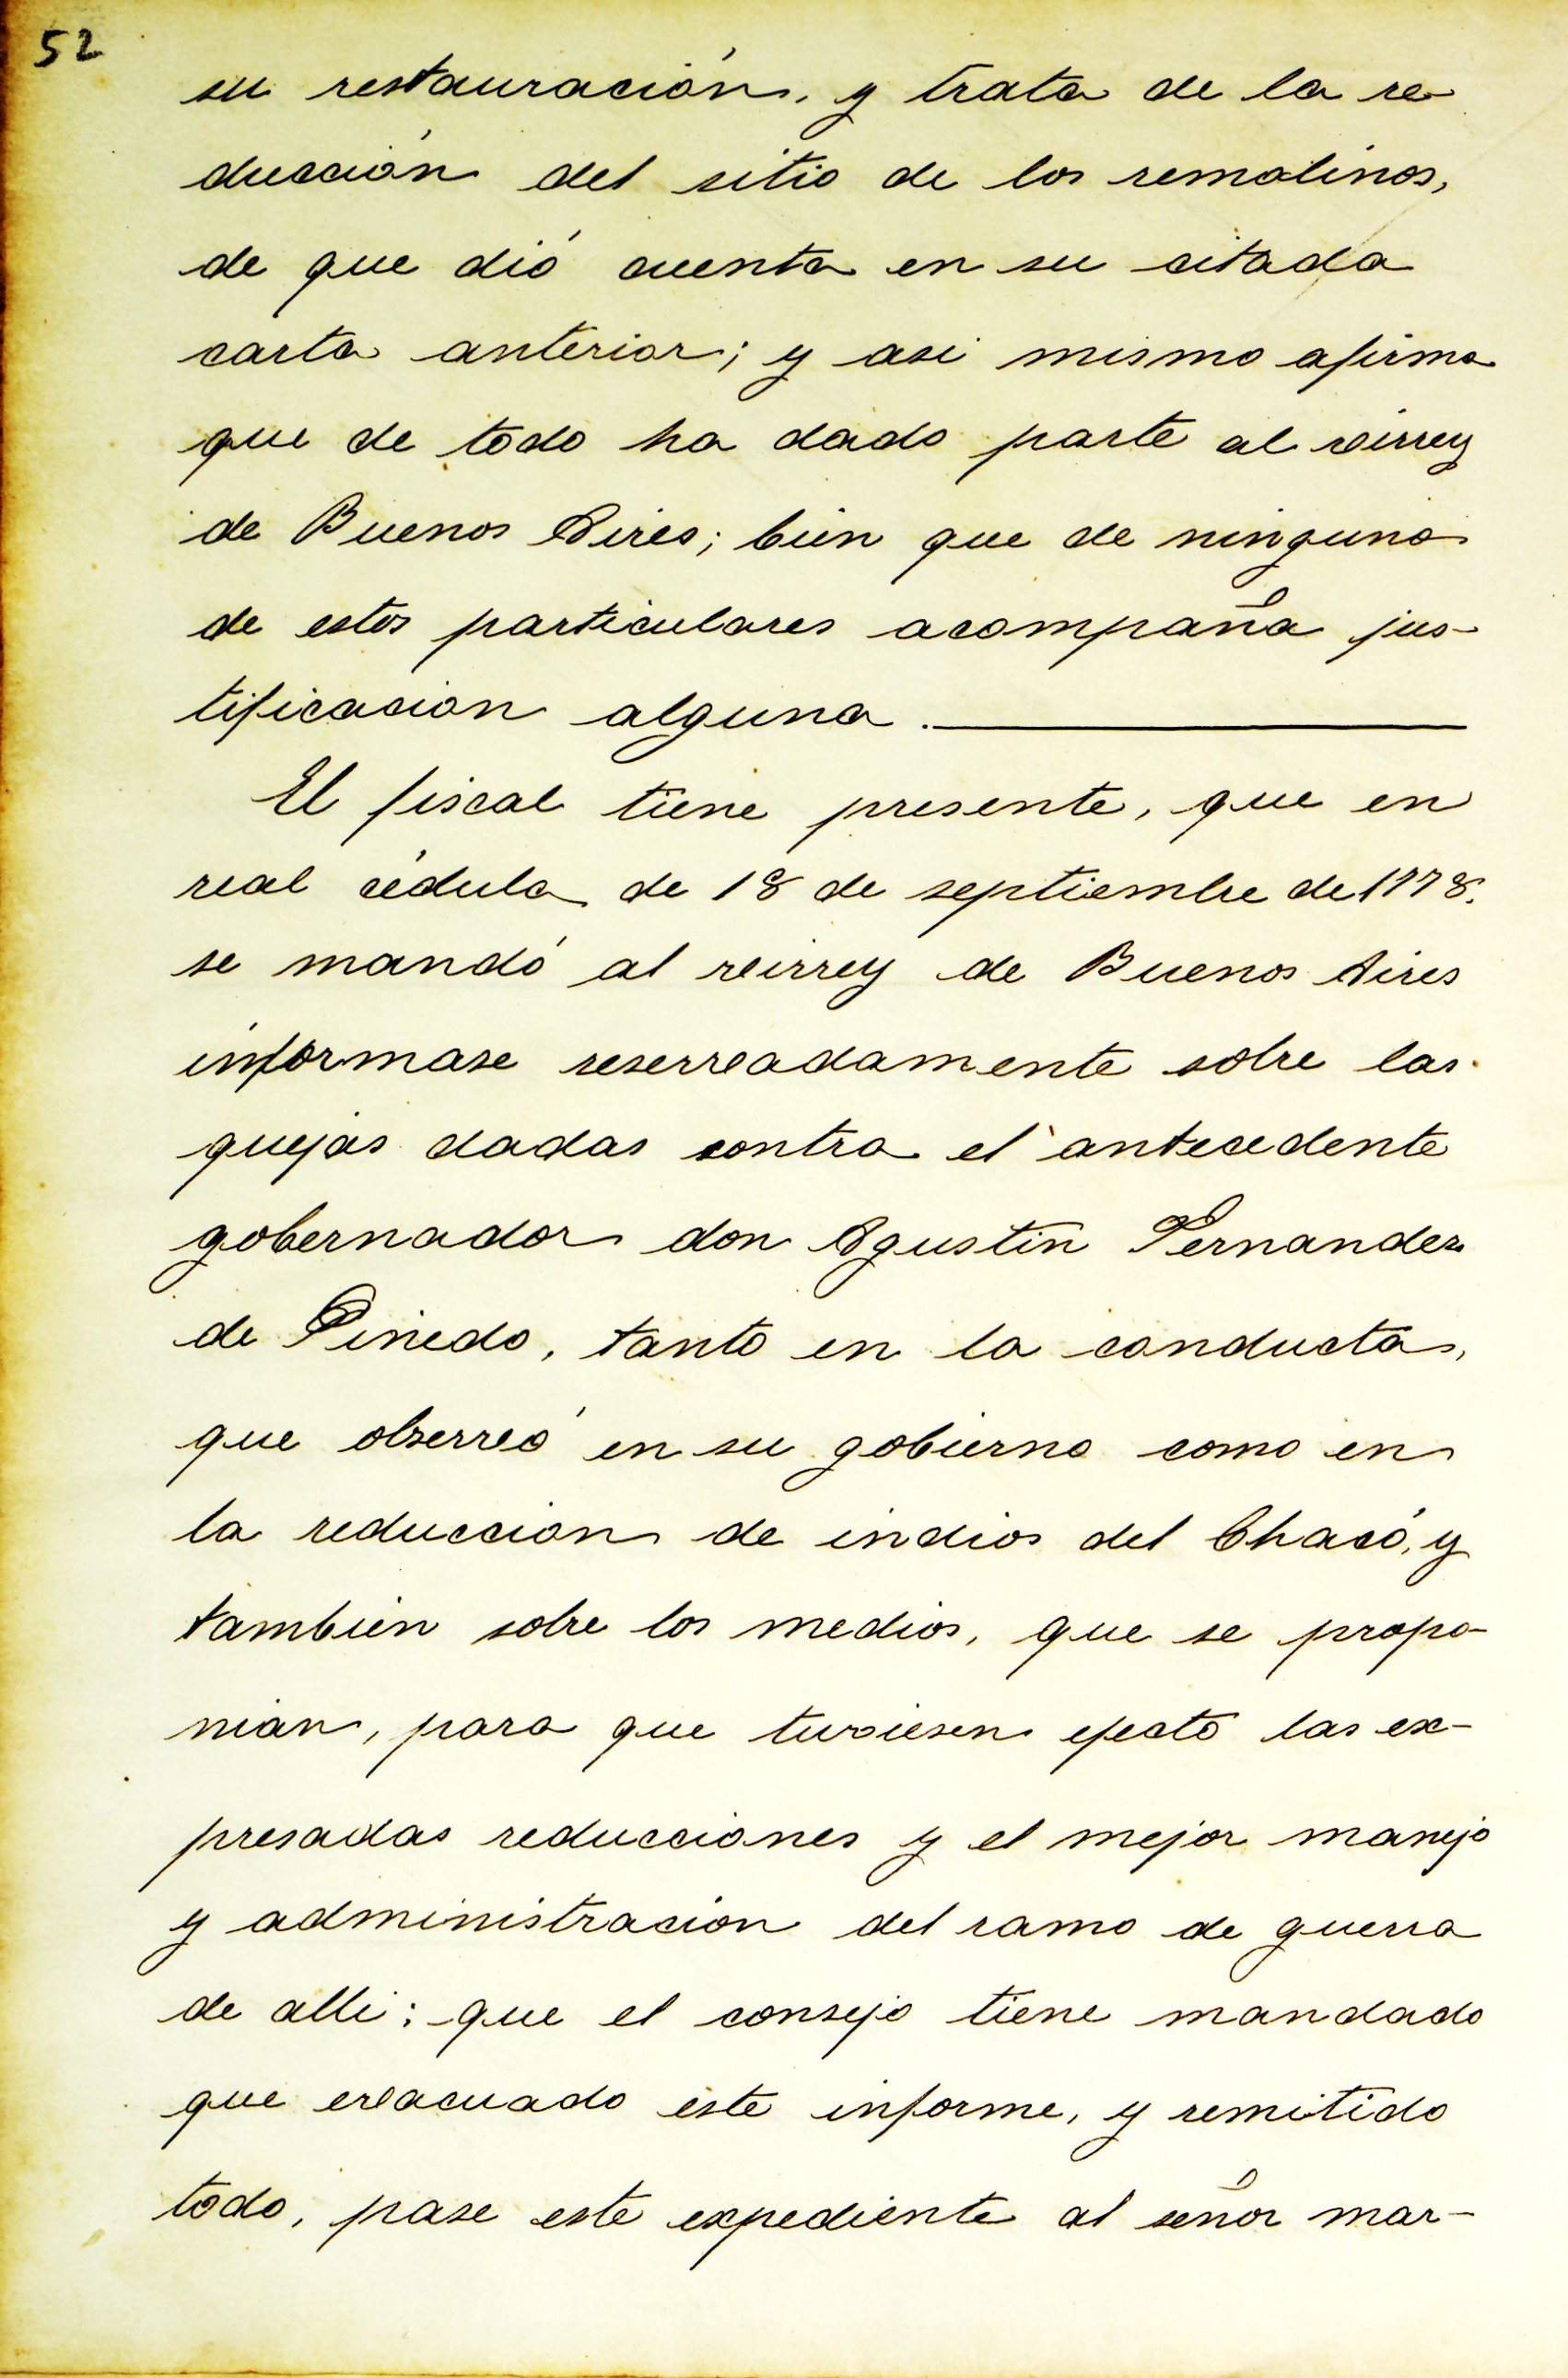 52
su restauración, y trata de la re-
ducción del sitio de los remolinos,
de que dió cuenta en su citada
carta anterior; y asi mismo afirma
que de todo ha dado parte al virrey
de Buenos Aires; bien que de ninguno
de estos particulares acompaña jus-
tificacion alguna.
El fiscal tiene presente, que en
real cédula de 18 de septiembre de 1778.
se mandó al virrey de Buenos Aires
informase reservadamente sobre las
quejas dadas contra el antecedente
gobernador don Agustin Fernandez
de Pinedo, tanto en la conducta,
que observó en su gobierno como en
la reduccion de indios del Chacó, y
tambien sobre los medios, que se propo-
nian, para que tuviesen efecto las ex-
presadas reducciones y el mejor manejo
y administracion del ramo de guerra
de alli: que el consejo tiene mandado
que evacuado este informe, y remitido
todo, pase este expediente al señor mar-